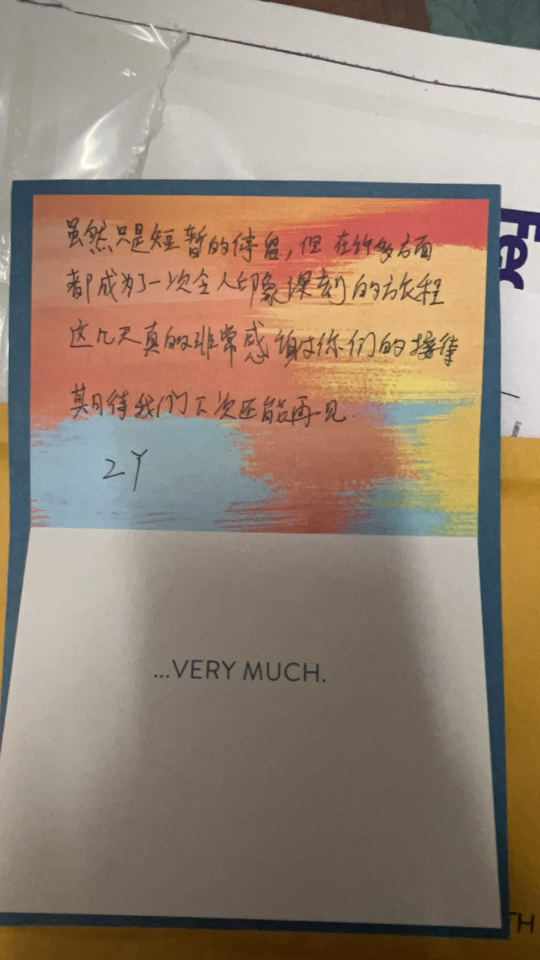 Fe
虽然只是短暂的停留，但在许多方面
都成为了一次令人印象深刻的旅程
这几天真的非常感谢你们的接待
期待我们下次还能再见.
ZY
...VERY MUCH.
TH